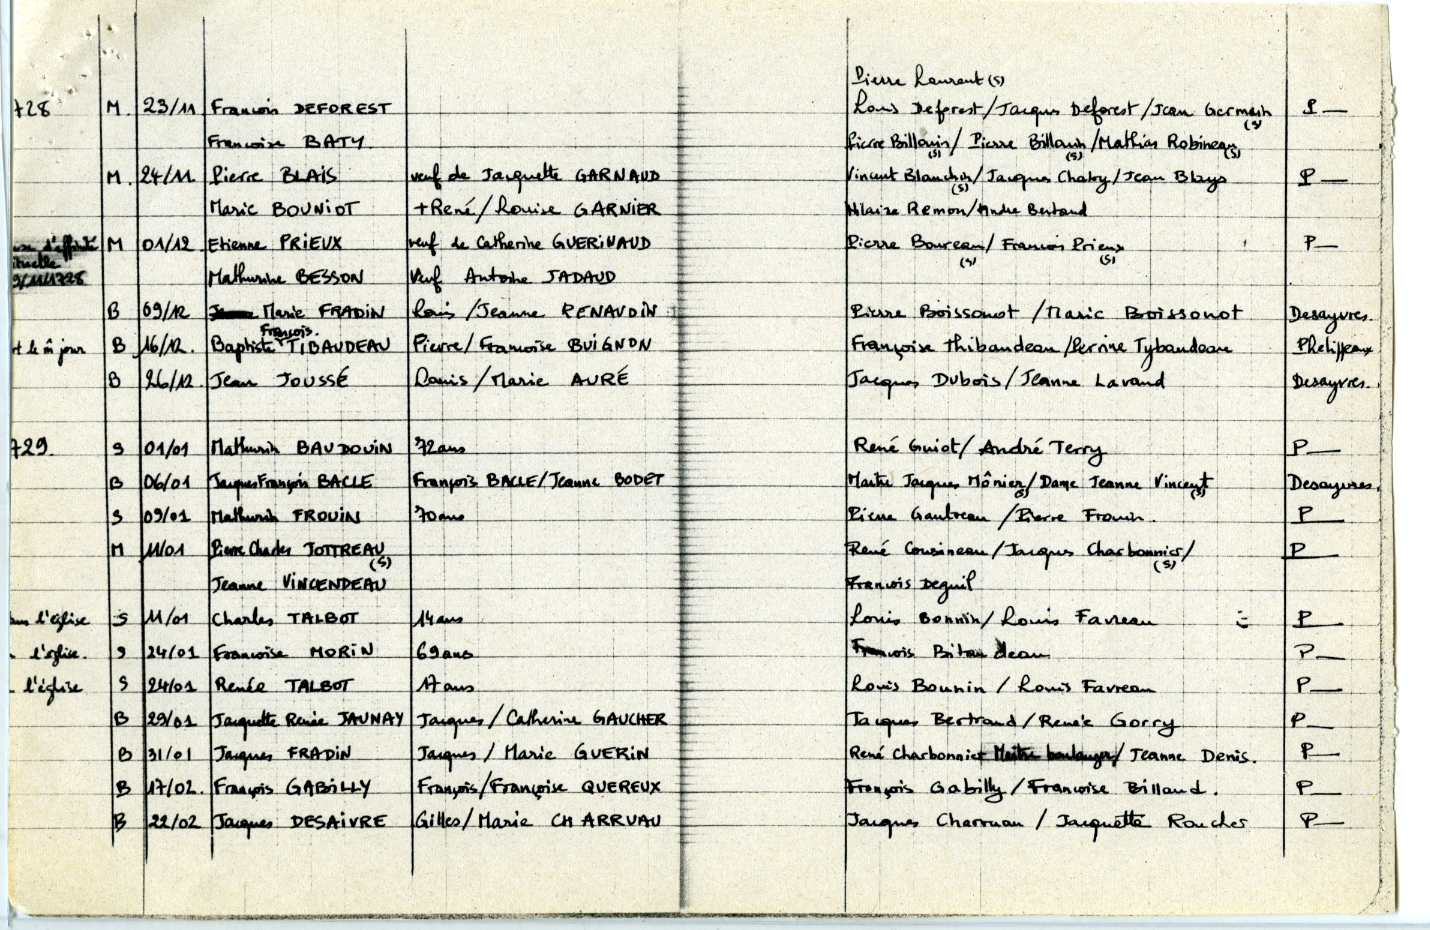 Pierre Laurent (s)
728 M. 23/11 François DEFOREST Louis Deforest/Jacques Deforest/Jean Germain (s) P—
Françoise BATY. Pierre Billouin (s)/ Pierre Billouin (s)/Mathias Robineau (s)
M. 24/11 Pierre BLAIS veuf de Jacquette GARNAUD Vincent Blanchin (s)/Jacques Chaby/Jean Blays P—
Marie BOUNIOT +René/Louise GARNIER Hilaire Remon/André Bertaud
d'affinité M 01/12 Etienne PRIEUX veuf de Catherine GUERINAUD Pierre Boureau (s)/ François Prieux (s) P—
9/11/1728 Mathurine BESSON Veuf Antoine JADAUD
B 09/12 Marie FRADIN Louis/Jeanne RENAUDIN Pierre Boissonot/Marie Boissonot Desayvres.
le m̂ jour B 16/12. Baptiste François. TIBAUDEAU Pierre/Françoise BUIGNON Françoise Thibaudeau/Perrine Tybaudeau Phelippeaux
B 26/12 Jean JOUSSÉ Louis/Marie AURÉ Jacques Dubois/Jeanne Lavaud Desayvres.
729. S 01/01 Mathurin BAUDOUIN 72ans René Guiot/André Terry P—
B 06/01 Jacques François BACLE François BACLE/Jeanne BODET Maître Jacques Mônier (s)/Dame Jeanne Vincent (s) Desayvres.
S 09/01 Mathurin FROUIN 70ans Pierre Gautreau/Pierre Frouin. P—
M 11/01 Pierre Charles JOTTREAU (s) René Cousineau/Jacques Charbonnier (s)/ P—
Jeanne VINCENDEAU François Deguil
l'église S 11/01 Charles TALBOT 14ans Louis Bonnin/Louis Favreau P—
l'église. S 24/01 Françoise MORIN 69ans François Bitaudeau P—
l'église S 24/01 Renée TALBOT 17ans Louis Bounin/Louis Favreau P—
B 29/01 Jacquette Renée JAUNAY Jacques/Catherine GAUCHER Jacques Bertrand/Renée Gorry P—
B 31/01 Jacques FRADIN Jacques/Marie GUERIN René Charbonnier Maître boulanger/Jeanne Denis. P—
B 17/02. François GABILLY François/Françoise QUEREUX François Gabilly/Françoise Billaud. P—
B 22/02 Jacques DESAIVRE Gilles/Marie CHARRUAU Jacques Charruau/Jacquette Roucher P—